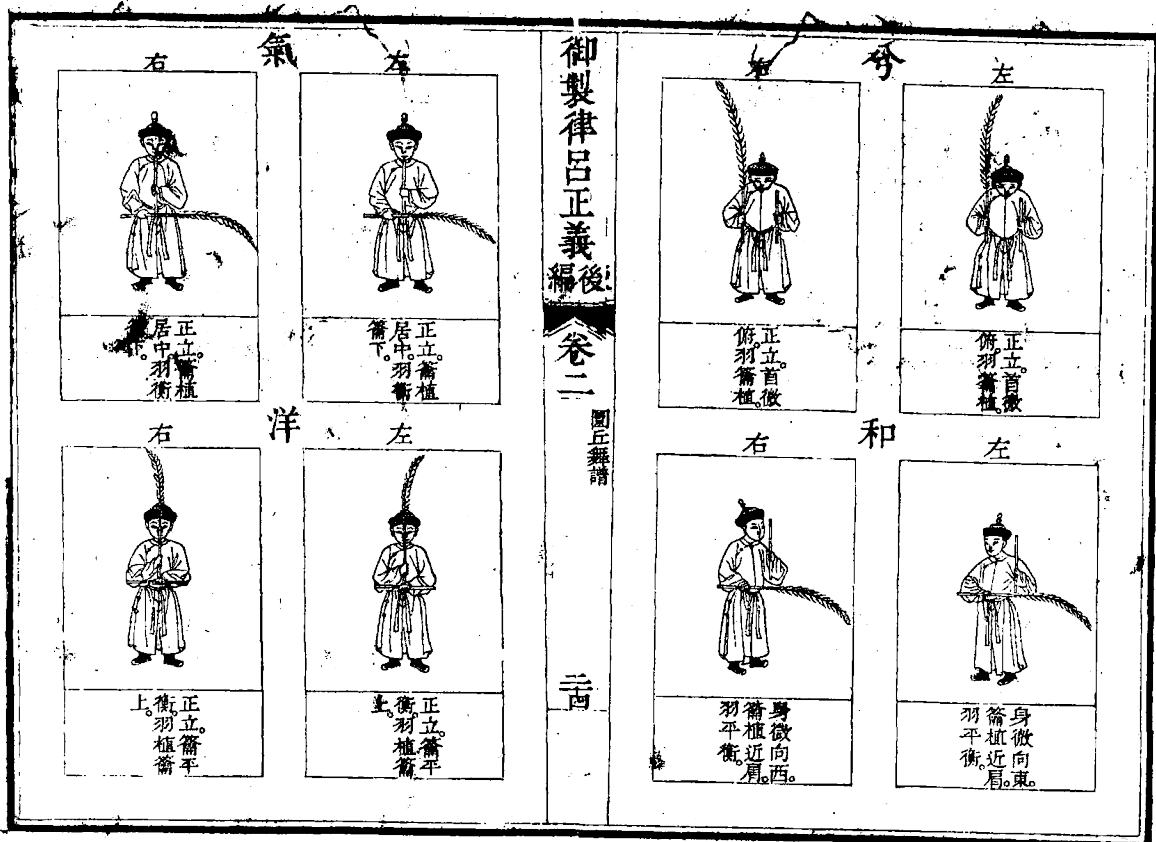 兮
左
正立。首微
俯。羽籥植。
右
正立。首微
俯。羽籥植。
和
左
身微向東。
籥植近肩。
羽平衡。
右
身微向西。
籥植近肩。
羽平衡。
御製律呂正義後編
卷二
圜丘舞譜
氣
左
正立。籥植
居中。羽衡
籥下。
右
正立。籥植
居中。羽衡
洋
左
正立。籥平
衡。羽植籥
上。
右
正立。籥平
衡。羽植籥
上。